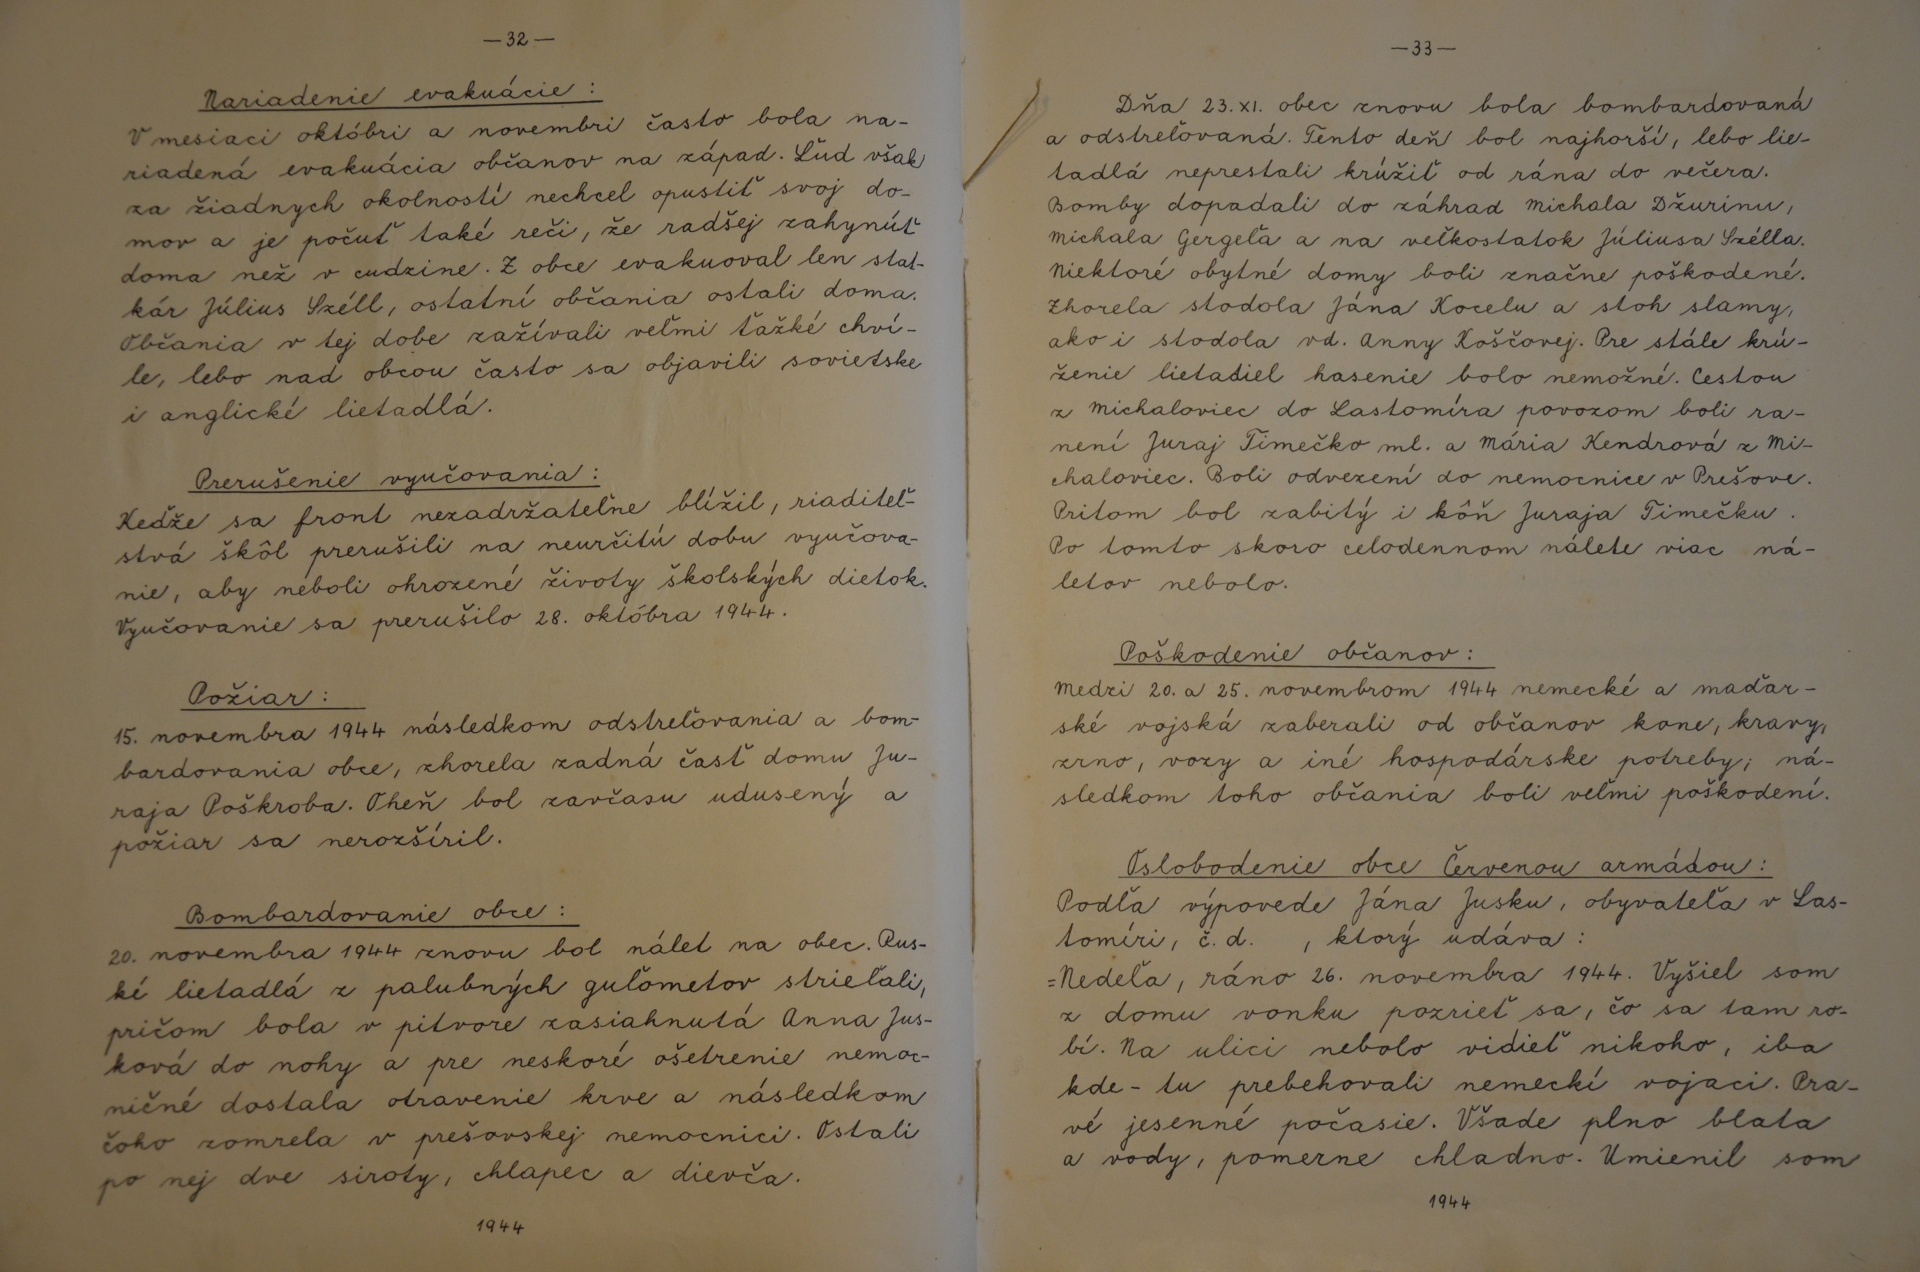 —32—
Nariadenie evakuácie :
V mesiaci októbri a novembri často bola na-
riadená evakuácia občanov na západ. Ľud však
za žiadnych okolností nechcel opustiť svoj do-
mov a je počuť také reči, že radšej zahynúť
doma než v cudzine. Z obce evakuoval len stat-
kár Július Széll, ostatní občania ostali doma.
Občania v tej dobe zažívali veľmi ťažké chví-
le, lebo nad obcou často sa objavili sovietske
i anglické lietadlá.
Prerušenie vyučovania :
Keďže sa front nezadržateľne blížil, riaditeľ-
stvá škôl prerušili na neurčitú dobu vyučova-
nie, aby neboli ohrozené životy školských dietok.
Vyučovanie sa prerušilo 28. októbra 1944.
Požiar :
15. novembra 1944 následkom odstreľovania a bom-
bardovania obce, zhorela zadná časť domu Ju-
raja Poškroba. Oheň bol zavčasu udusený a
požiar sa nerozšíril.
Bombardovanie obce :
20. novembra 1944 znovu bol nálet na obec. Rus-
ké lietadlá z palubných guľometov strieľali,
pričom bola v pitvore zasiahnutá Anna Jus-
ková do nohy a pre neskoré ošetrenie nemoc-
ničné dostala otravenie krve a následkom
čoho zomrela v prešovskej nemocnici. Ostali
po nej dve siroty, chlapec a dievča.
1944
—33—
Dňa 23. XI. obec znovu bola bombardovaná
a odstreľovaná. Tento deň bol najhorší, lebo lie-
tadlá neprestali krúžiť od rána do večera.
Bomby dopadali do záhrad Michala Džurinu,
Michala Gergeľa a na veľkostatok Júliusa Szélla.
Niektoré obytné domy boli značne poškodené.
Zhorela stodola Jána Kocelu a stoh slamy,
ako i stodola vd. Anny Koščovej. Pre stále krú-
ženie lietadiel hasenie bolo nemožné. Cestou
z Michaloviec do Lastomíra povozom boli ra-
není Juraj Timečko ml. a Mária Kendrová z Mi-
chaloviec. Boli odvezení do nemocnice v Prešove.
Pritom bol zabitý i kôň Juraja Timečku.
Po tomto skoro celodennom nálete viac ná-
letov nebolo.
Poškodenie občanov :
Medzi 20. a 25. novembrom 1944 nemecké a maďar-
ské vojská zaberali od občanov kone, kravy,
zrno, vozy a iné hospodárske potreby; ná-
sledkom toho občania boli veľmi poškodení.
Oslobodenie obce Červenou armádou :
Podľa výpovede Jána Jusku, obyvateľa v Las-
tomíri, č. d. , ktorý udáva :
=Nedeľa, ráno 26. novembra 1944. Vyšiel som
z domu vonku pozrieť sa, čo sa tam ro-
bí. Na ulici nebolo vidieť nikoho, iba
kde-tu prebehovali nemeckí vojaci. Pra-
vé jesenné počasie. Všade plno blata
a vody, pomerne chladno. Umienil som
1944